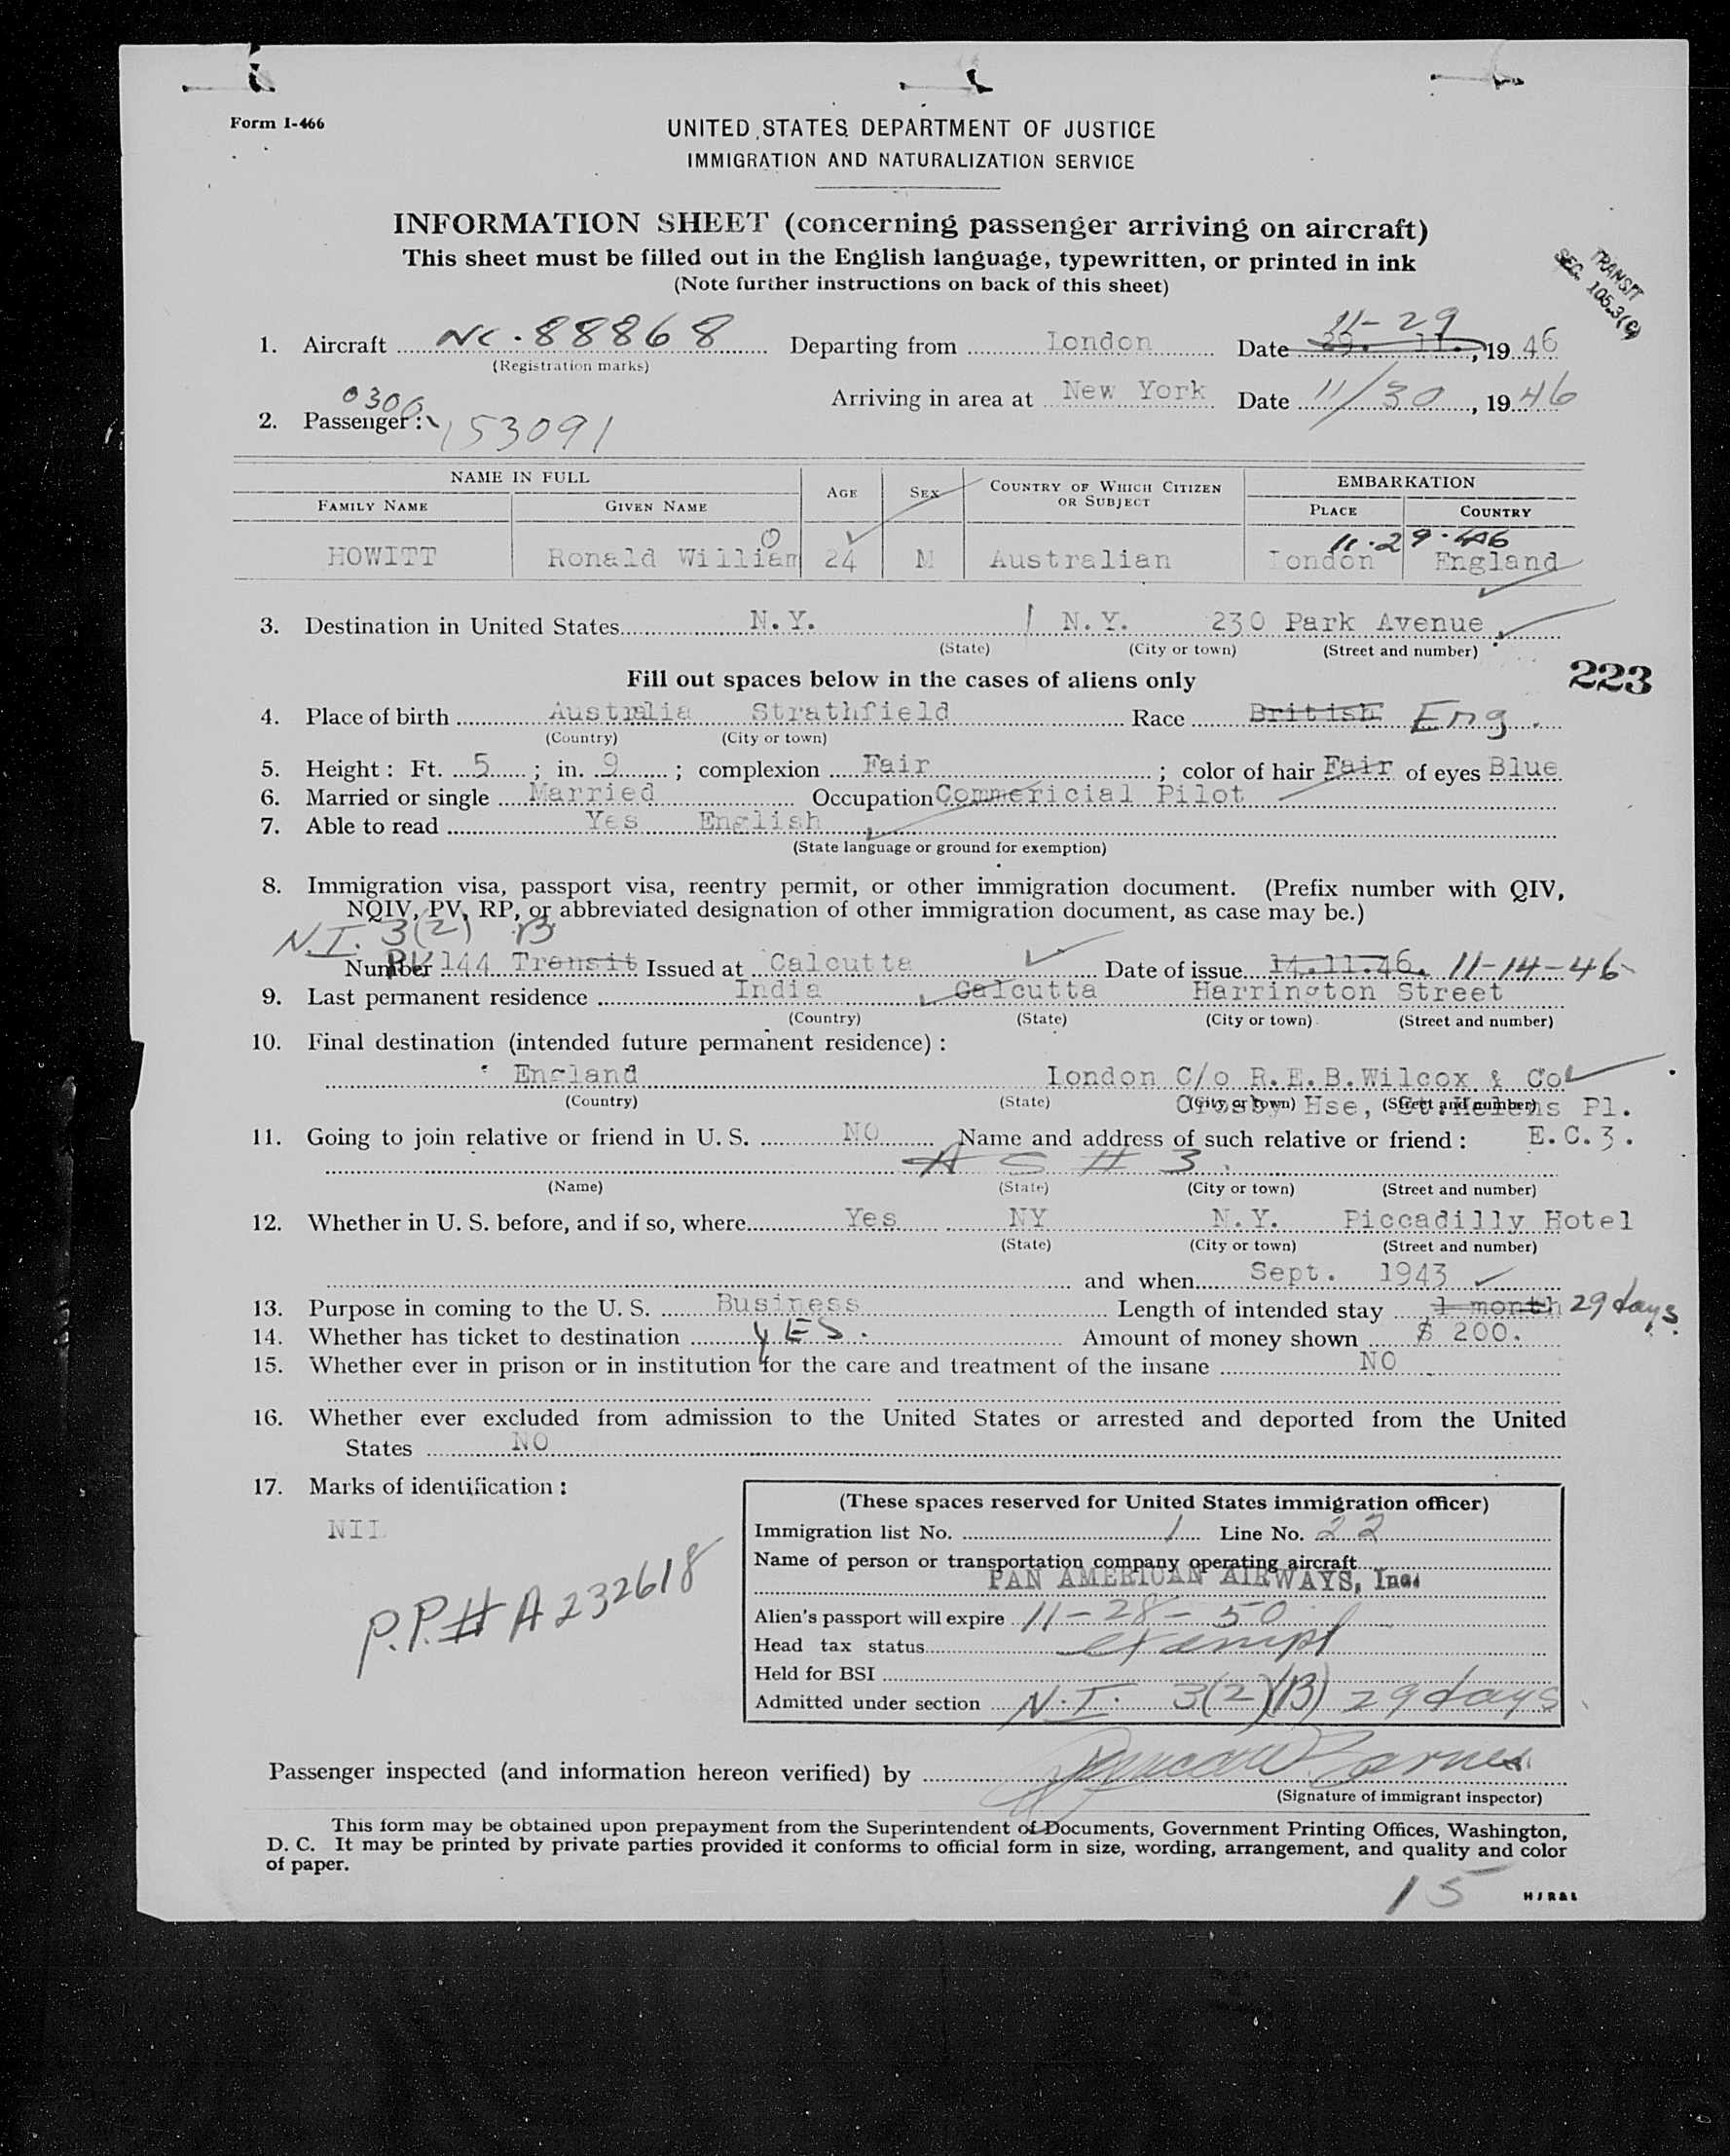 Form I-466
UNITED STATES DEPARTMENT OF JUSTICE
IMMIGRATION AND NATURALIZATION SERVICE
INFORMATION SHEET (concerning passenger arriving on aircraft)
This sheet must be filled out in the English language, typewritten, or printed in ink
(Note further instructions on back of this sheet)
TRANSIT
SEC. 105.3(c)
11-29
1. Aircraft NC.88868 Departing from London Date 29. 11., 1946
(Registration marks)
Arriving in area at New York Date 11/30, 1946
0300
2. Passenger: 153091
NAME IN FULL AGE SEX COUNTRY OF WHICH CITIZEN OR SUBJECT EMBARKATION
FAMILY NAME GIVEN NAME PLACE COUNTRY
11.29.46
HOWITT Ronald William 24 M Australian London England
3. Destination in United States N.Y. N.Y. 230 Park Avenue
(State) (City or town) (Street and number)
223
Fill out spaces below in the cases of aliens only
4. Place of birth Australia Strathfield Race British Eng.
(Country) (City or town)
5. Height: Ft. 5; in. 9; complexion Fair; color of hair Fair of eyes Blue
6. Married or single Married Occupation Commericial Pilot
7. Able to read Yes English
(State language or ground for exemption)
8. Immigration visa, passport visa, reentry permit, or other immigration document. (Prefix number with QIV,
NQIV, PV, RP, or abbreviated designation of other immigration document, as case may be.)
N.I. 3(2) B
Number PV 144 Transit Issued at Calcutta Date of issue 14.11.46. 11-14-46
9. Last permanent residence India Calcutta Harrington Street
(Country) (State) (City or town) (Street and number)
10. Final destination (intended future permanent residence):
England London C/o R.E.B.Wilcox & Co
(Country) (State) (City or town) (Street and number)
Crosby Hse, St.Helens Pl.
E.C.3.
11. Going to join relative or friend in U. S. NO Name and address of such relative or friend:
A S # 3
(Name) (State) (City or town) (Street and number)
12. Whether in U. S. before, and if so, where Yes NY N.Y. Piccadilly Hotel
(State) (City or town) (Street and number)
and when Sept. 1943
13. Purpose in coming to the U. S. Business Length of intended stay 1 month 29 days
14. Whether has ticket to destination YES. Amount of money shown $ 200.
15. Whether ever in prison or in institution for the care and treatment of the insane NO
16. Whether ever excluded from admission to the United States or arrested and deported from the United
States NO
17. Marks of identification:
NIL
P.P.# A232618
(These spaces reserved for United States immigration officer)
Immigration list No. 1 Line No. 22
Name of person or transportation company operating aircraft
PAN AMERICAN AIRWAYS, Inc.
Alien's passport will expire 11-28-50
Head tax status exempt
Held for BSI
Admitted under section N.I. 3(2)(B) 29 days
Passenger inspected (and information hereon verified) by
(Signature of immigrant inspector)
This form may be obtained upon prepayment from the Superintendent of Documents, Government Printing Offices, Washington,
D. C. It may be printed by private parties provided it conforms to official form in size, wording, arrangement, and quality and color
of paper.
15
HJR&L